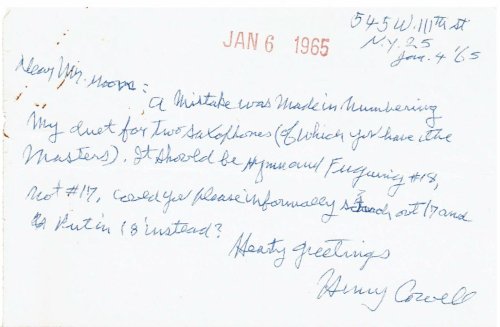 545 W. 111th st
N.Y. 25
Jan. 4 '65
JAN 6 1965
Dear Mr. Moore:
A mistake was made in numbering
my duet for two saxophones (of which you have the
masters). It should be Hymn and Fuguing #18,
not #17, could you please informally scratch out 17 and
put in 18 instead?
Hearty greetings
Henry Cowell